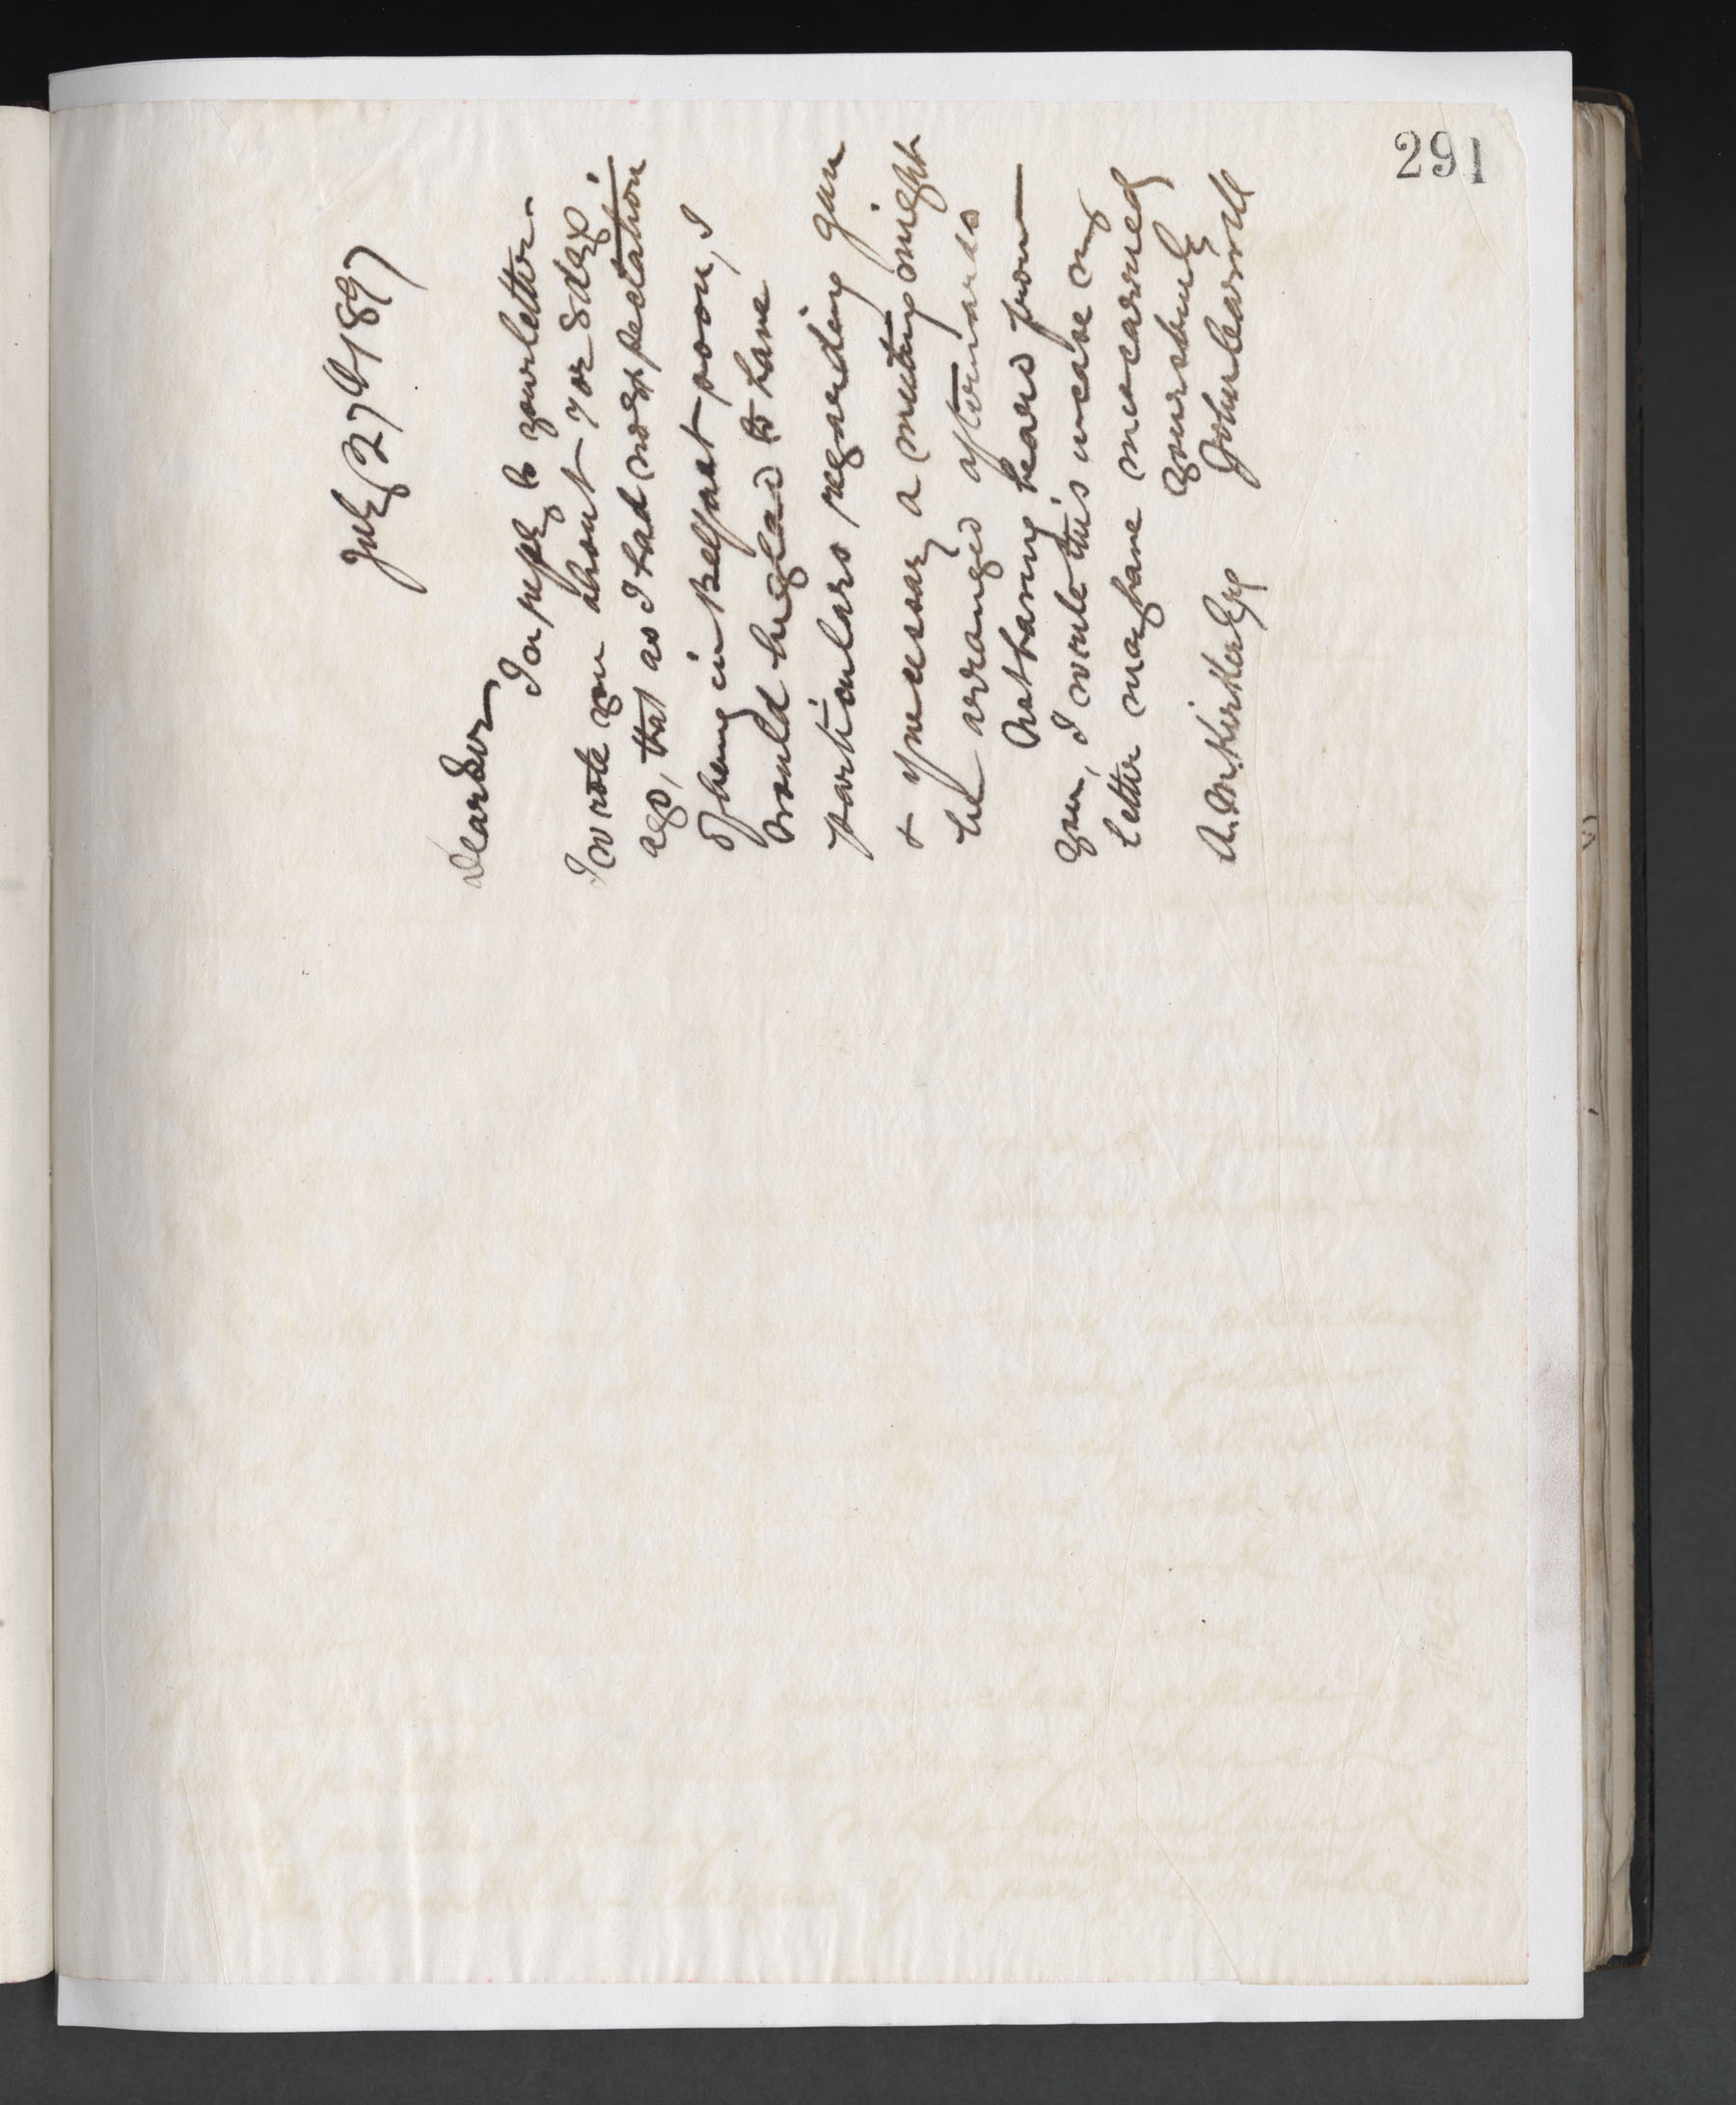 291
July 27th 1897
Dear Sir
In reply to your letter
I wrote you about 7 or 8 days
ago, that as I had no expectation
of being in Belfast soon, I
would be glad to have
particulars regarding gun
& if necessary a meeting might
be arranged afterwards
Not having heard from
you, I write this in case my
letter may have miscarried
yours truly
A. M. Kirker Esq John Carswell